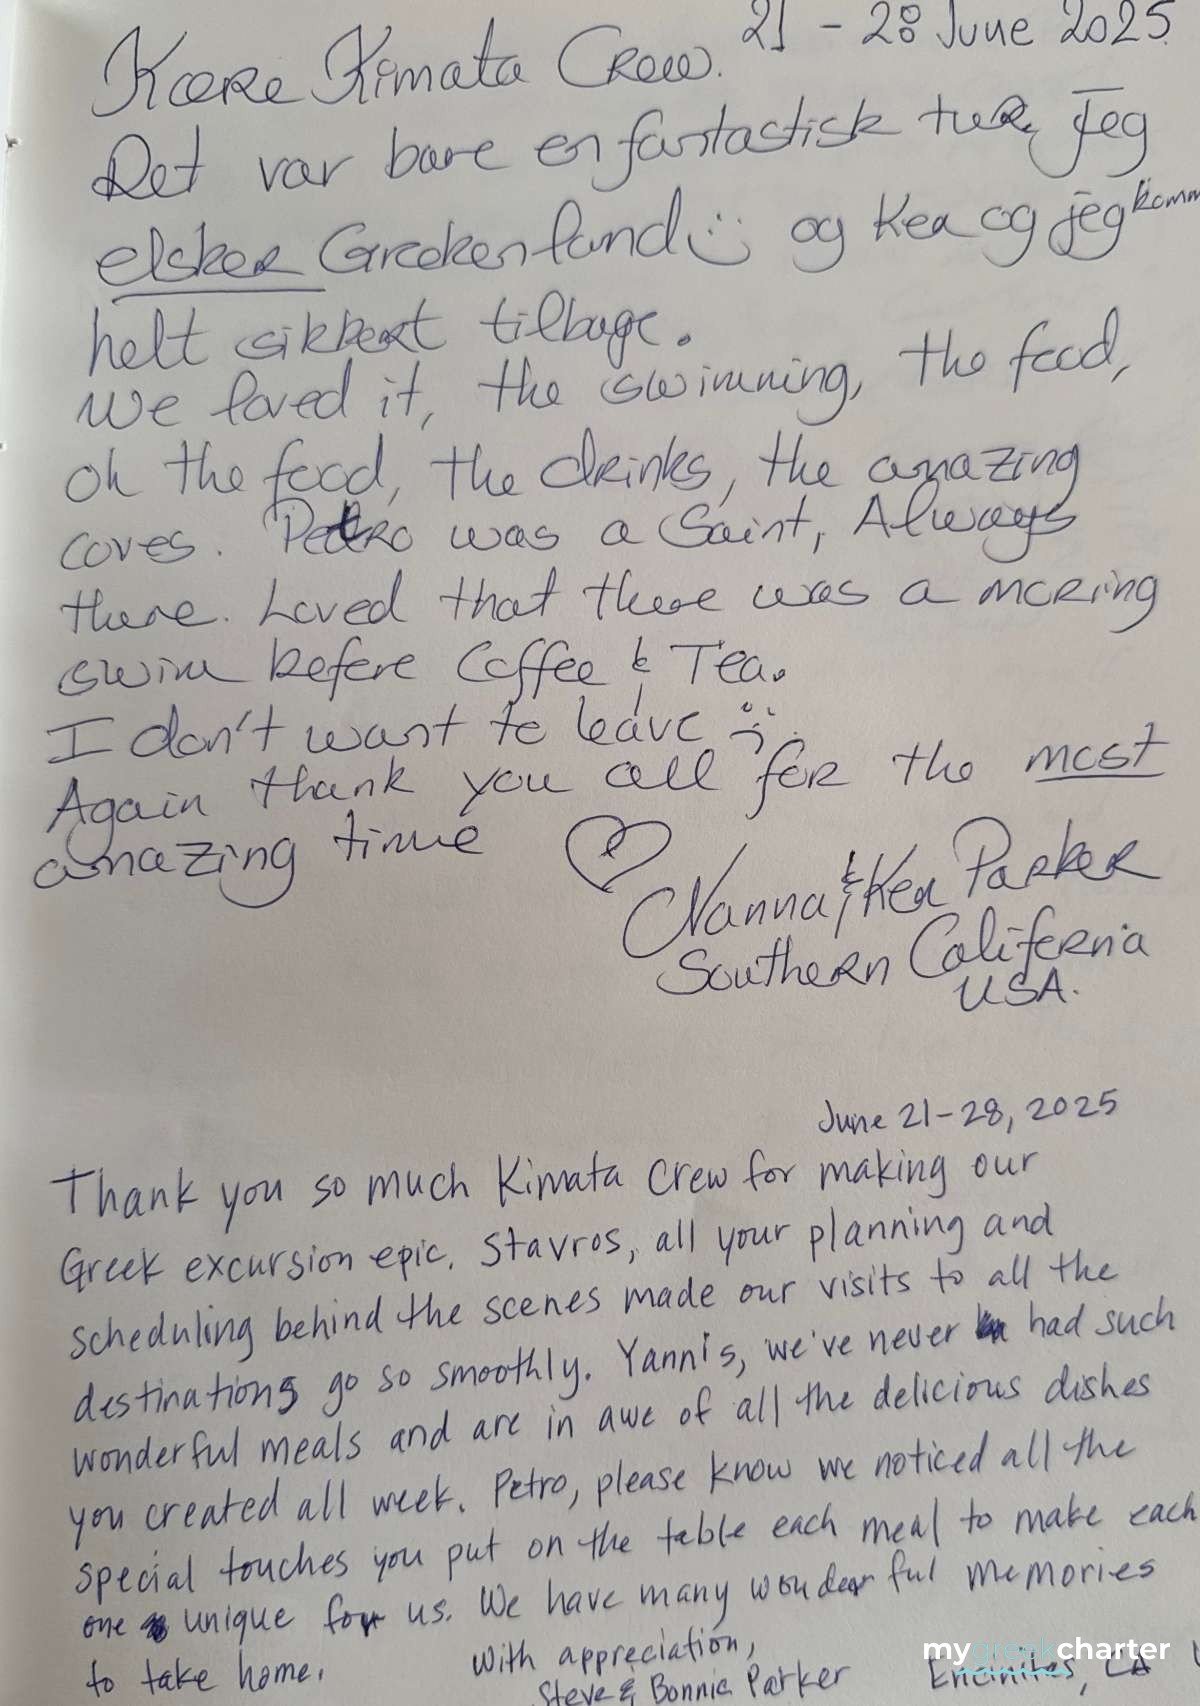 21 - 28 June 2025
Kære Kimata Crew.
Det var bare en fantastisk tur, Jeg
elsker Grækenland :) og Kea og jeg komm
helt sikkert tilbage.
We loved it, the swimming, the food,
oh the food, the drinks, the amazing
coves. Petro was a Saint, Always
there. Loved that there was a moring
swim before Coffee & Tea.
I don't want to leave :(.
Again thank you all for the most
amazing time ♡
Nanna & Kea Parker
Southern California
USA.
June 21-28, 2025
Thank you so much Kimata Crew for making our
Greek excursion epic. Stavros, all your planning and
scheduling behind the scenes made our visits to all the
destinations go so smoothly. Yannis, we've never had such
wonderful meals and are in awe of all the delicious dishes
you created all week. Petro, please know we noticed all the
special touches you put on the table each meal to make each
one unique for us. We have many wonderful memories
to take home.
With appreciation,
Steve & Bonnie Parker
Encinitas, CA
mygreekcharter